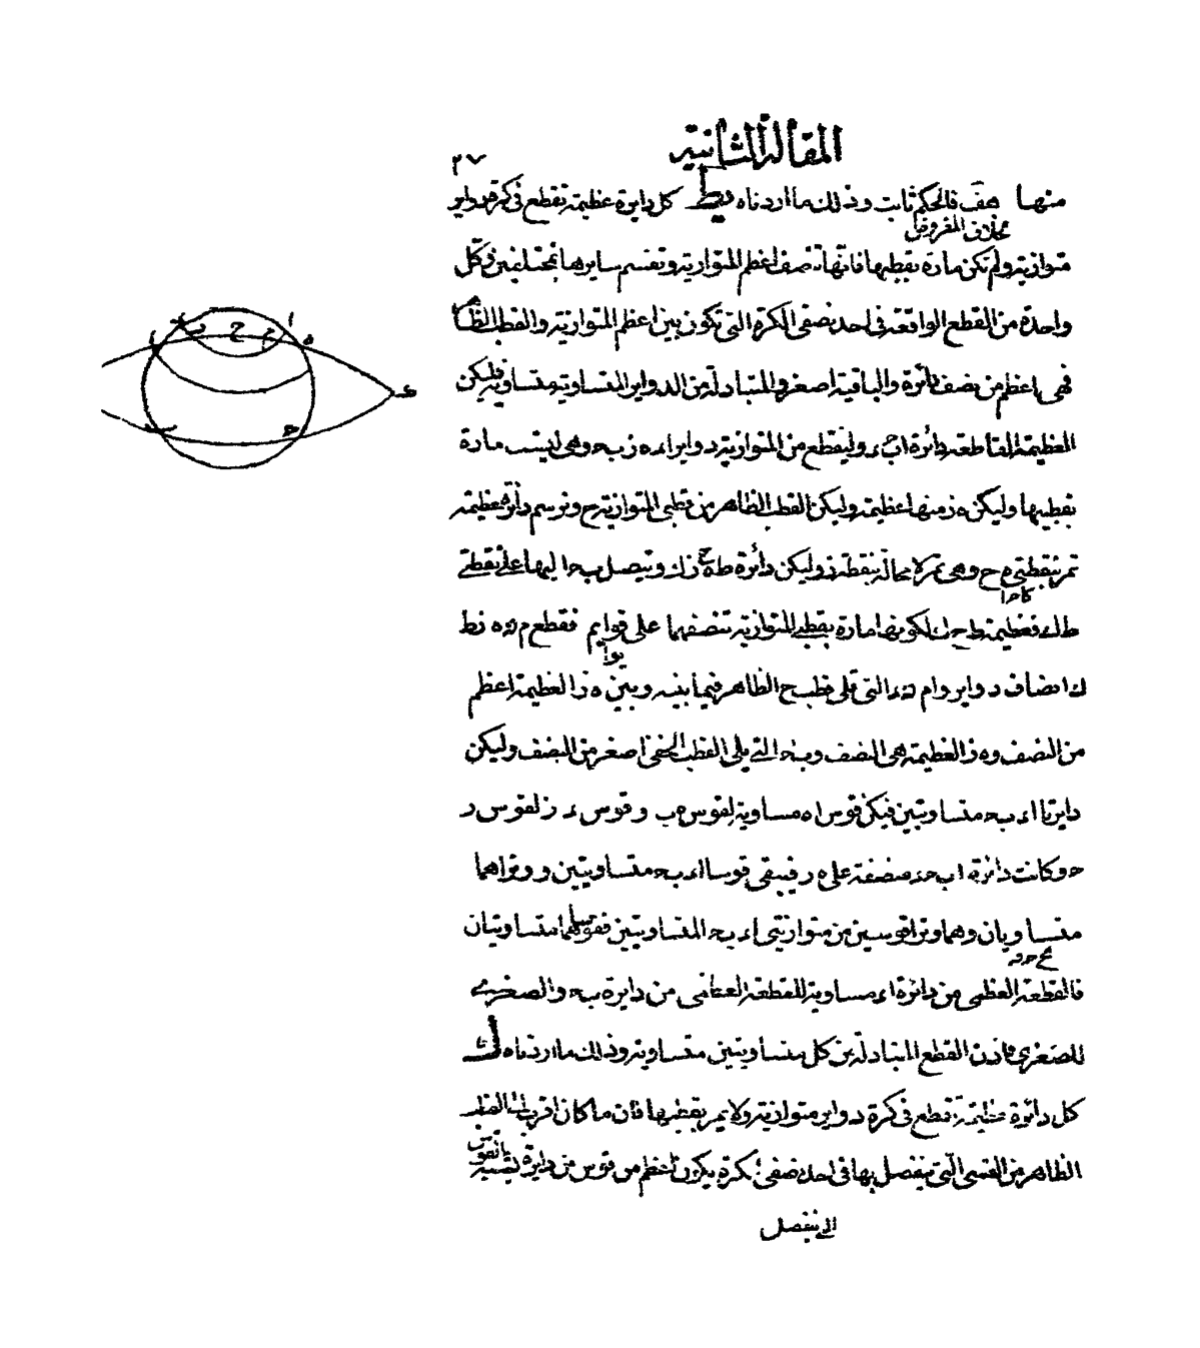 المقالة الثانية
٢٧
منها هف فالحكم ثابت وذلك ما اردناه يط كل دايرة عظيمة تقطع في كرة دواير
بخلاف المفروض
متوازية ولم تكن مارة بقطبيها فانها تنصف اعظم المتوازية وتقسم سايرها بمختلفين وكل
واحدة من القطع الواقعة في احد نصفي الكرة التي تكون بين اعظم المتوازية والقطب الظاهر
فهي اعظم من نصف دائرة والباقية اصغر والمتبادلة من الدواير المتساوية متساوية فليكن
العظيمة القاطعة دائرة اب وليقطع من المتوازية دواير اء ه ز ب ح وهي ليست مارة
بقطبيها وليكن ه ز منها عظيمة وليكن القطب الظاهر من قطبي المتوازية ح ونرسم دائرة عظيمة
تمر بنقطتي ه ح وهي تمر لا محالة بنقطة ز وليكن دائرة ط ه ح ز ك ويتصل ب ح اليها على نقطتي
ط ك فعظيمة ط ح ك لكونها مارة بقطبي المتوازية تنصفها على قوايم فقطع م ه ز ط
ك انصاف دواير وام التي تلي قطب ح الظاهر فيما بينه وبين ه ز العظيمة اعظم
من النصف وه ز العظيمة هي النصف وب ح التي يلي القطب الخفي اصغر من النصف وليكن
دايرتا اء ب ح متساويتين فيكن قوس ا ه مساوية لقوس ه ب وقوس ء ز لقوس ز
ح وكانت دائرة اب ح منصفة على ه ز فيبقى قوسا اء ب ح متساويتين ووتراهما
متساويان وهما وترا قوسين من متوازيتي اء ب ح المتساويتين فقوساهما متساويتان
فالقطعة العظمى من دائرة اء مساوية للقطعة العظمى من دايرة ب ح والصغرى
للصغرى فاذن القطع المتبادلة من كل متساويتين متساوية وذلك ما اردناه ك
كل دائرة عظيمة تقطع في كرة دواير متوازية ولا يمر بقطبيها فان ما كان اقرب الى القطب
الظاهر من القسي التي ينفصل بها في احد نصفي الكرة يكون اعظم من قوس من دايرة شبيهة بالقوس
التي ينفصل